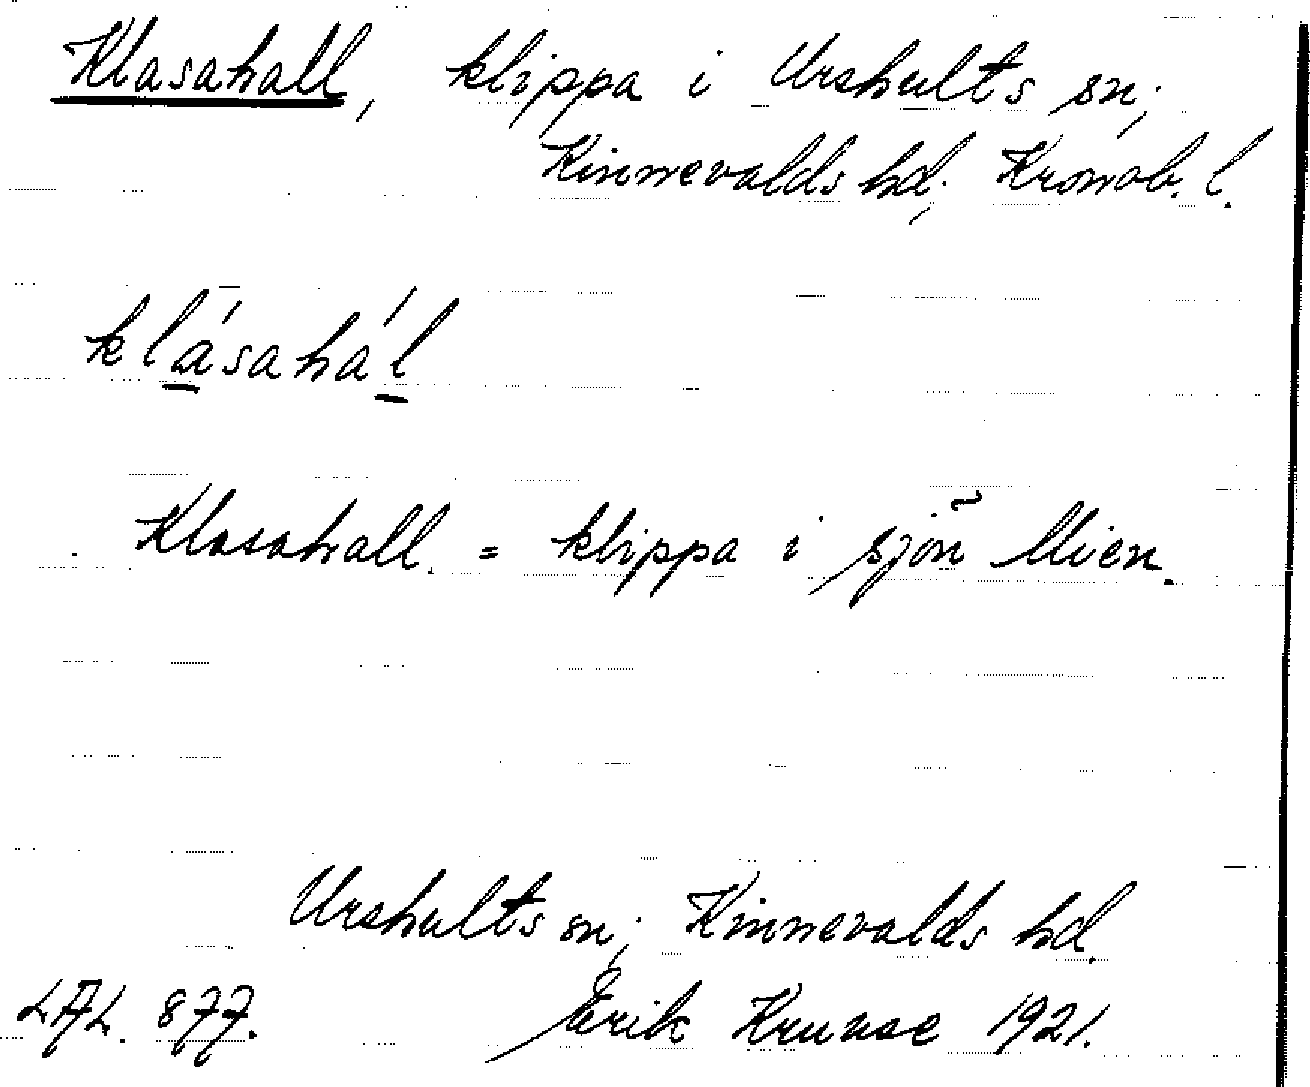 Klasahall, klippa i Urshults sn;
Kinnevalds hd; Kronob. l.
klásahál
Klasahall = klippa i sjön Mien.
Urshults sn; Kinnevalds hd.
LAL. 877. Erik Kruuse 1921.